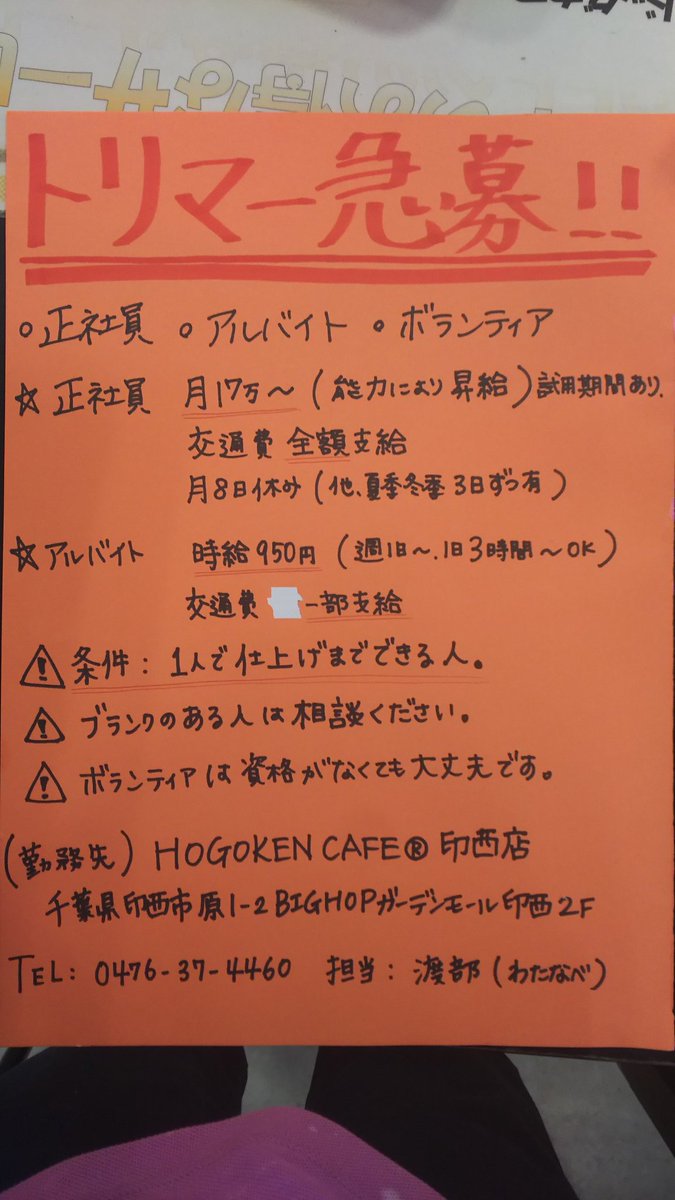 トリマー急募!!
○正社員 ○アルバイト ○ボランティア
☆正社員 月17万～(能力により昇給)試用期間あり.
交通費 全額支給
月8日休み(他、夏季冬季3日ずつ有)
☆アルバイト 時給950円(週1日～.1日3時間～OK)
交通費 一部支給
⚠条件:1人で仕上げまでできる人。
⚠ブランクのある人は相談ください。
⚠ボランティアは資格がなくても大丈夫です。
(勤務先) HOGOKEN CAFE® 印西店
千葉県印西市原1-2 BIGHOPガーデンモール印西2F
TEL: 0476-37-4460 担当:渡部(わたなべ)